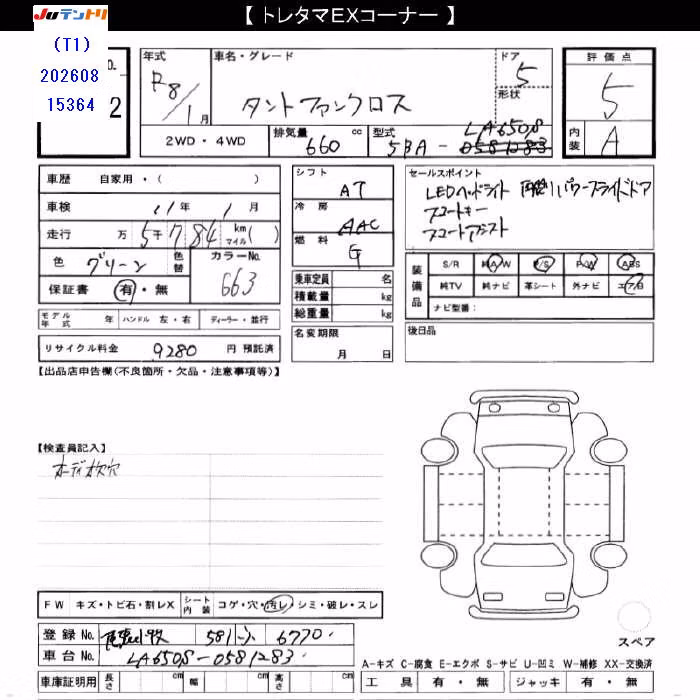 【 トレタマEXコーナー 】
Juテントリ
(T1)
202608
15364
O.
2
年式
R8/1月
車名・グレード
タントファンクロス
ドア
5
形状
評価点
5
内装
A
2WD・4WD
排気量
660 cc
型式
5BA-
LA650S
0581283
車歴
自家用・( )
車検
11年1月
走行
万5千784km(マイル)
色
グリーン
色替
カラーNo.
663
保証書
有・無
モデル年式
年
ハンドル 左・右
ディーラー・並行
リサイクル料金
9280
円 預託済
シフト
AT
冷房
AAC
燃料
G
乗車定員
名
積載量
kg
総重量
kg
名変期限
月 日
セールスポイント
LEDヘッドライト 両側パワースライドドア
スマートキー
スマートアシスト
装備品
S/R
純A/W
P/S
P/W
ABS
純TV
純ナビ
革シート
外ナビ
エアB
ナビ型番：
後日品
【出品店申告欄(不良箇所・欠品・注意事項等)】
【検査員記入】
オーディオ欠穴
FW
キズ・トビ石・割レX
シート内装
コゲ・穴・汚レ・シミ・破レ・スレ
登録No.
581 い 6770
車台No.
LA650S-0581283
車庫証明用
長さ
cm
幅
cm
高さ
cm
スペア
A-キズ C-腐食 E-エクボ S-サビ U-凹ミ W-補修 XX-交換済
工具
有・無
ジャッキ
有・無